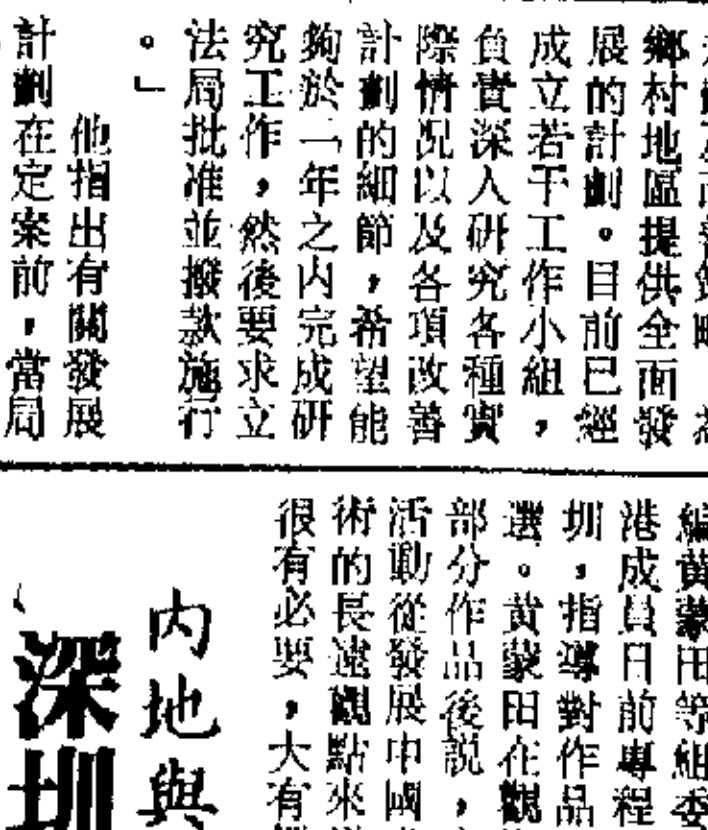 鄉村地區提供全面發
展的計劃。目前已經
成立若干工作小組，
負責深入研究各種實
際情況以及各項改善
計劃的細節，希望能
夠於一年之內完成研
究工作，然後要求立
法局批准並撥款施行
。」
他指出有關發展
計劃在定案前，當局
編黃蒙田等組委
港成員日前專程
圳，指導對作品
選。黃蒙田在觀
部分作品後説，
活動從發展中國
術的長遠觀點來
很有必要，大有
內地與
深圳